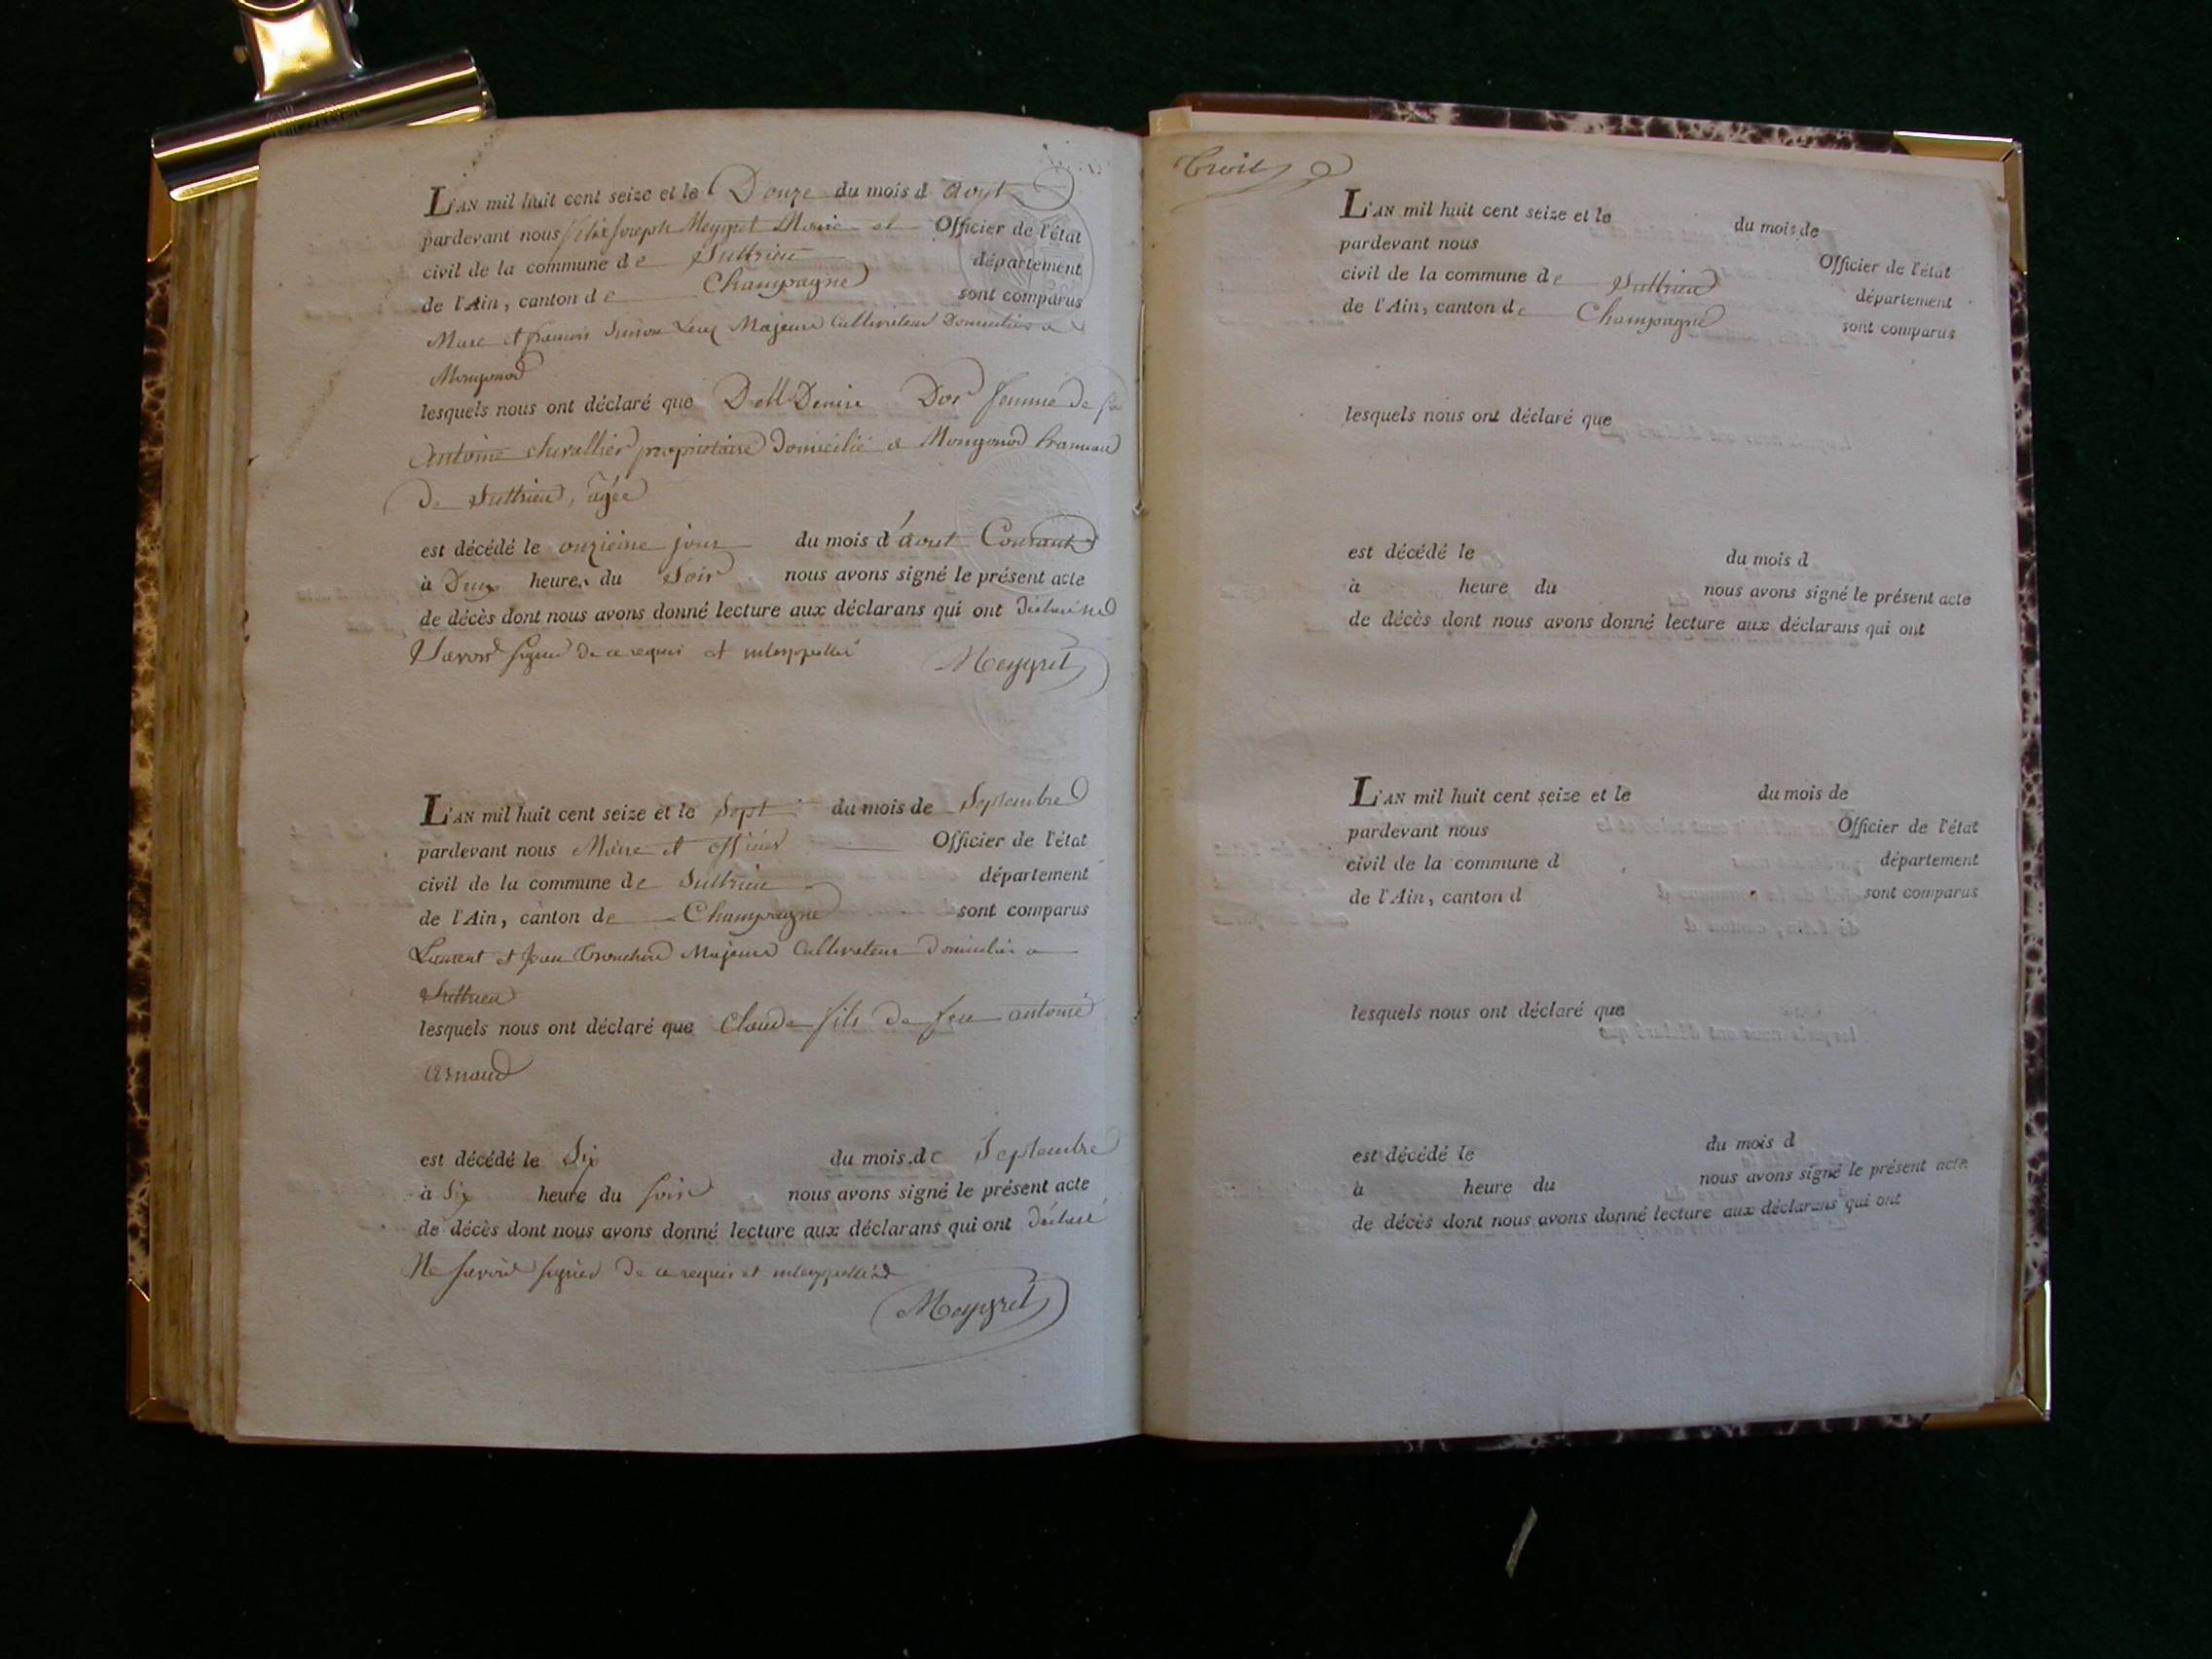 L'AN mil huit cent seize et le Douze du mois d aout
pardevant nous felix joseph Meygret Maire et Officier de l'état
civil de la commune de Suttrieu département
de l'Ain, canton de Champagne sont comparus
Marc et francois Deux Majeurs Cultivateur Domiciliés a
Mongonod
lesquels nous ont déclaré que Denise Dor femme de
antoine chevallier propriotaire Domicilié a Mongonod hameau
de Suttrieu, agée
est décédé le onzieme jour du mois d'aout Courant
à Deux heures du Soir nous avons signé le présent acte
de décès dont nous avons donné lecture aux déclarans qui ont déclaré ne
Savoir signer de ce requis et interppellés
Meygret
L'AN mil huit cent seize et le Sept du mois de Septembre
pardevant nous Maire et officier Officier de l'état
civil de la commune de Suttrieu département
de l'Ain, canton de Champagne sont comparus
Laurent et Jean Majeurs Cultivateur Domiciliés a
Suttrieu
lesquels nous ont déclaré que Claude fils de feu antoine
arnaud
est décédé le Six du mois de Septembre
à Six heure du soir nous avons signé le présent acte
de décès dont nous avons donné lecture aux déclarans qui ont déclaré
Ne savoir signer de ce requis et interppellés
Meygret
Trois
L'AN mil huit cent seize et le du mois de
pardevant nous Officier de l'état
civil de la commune de Suttrieu département
de l'Ain, canton de Champagne sont comparus
lesquels nous ont déclaré que
est décédé le du mois d
à heure du nous avons signé le présent acte
de décès dont nous avons donné lecture aux déclarans qui ont
L'AN mil huit cent seize et le du mois de
pardevant nous Officier de l'état
civil de la commune d département
de l'Ain, canton d sont comparus
lesquels nous ont déclaré que
est décédé le du mois d
à heure du nous avons signé le présent acte
de décès dont nous avons donné lecture aux déclarans qui ont